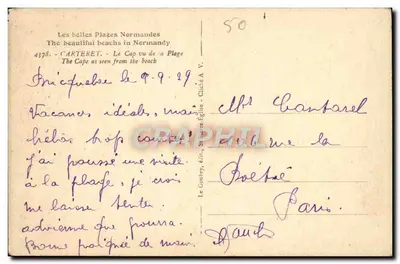 Les Belles Plages Normandes
The beautiful beachs in Normandy
4378. - CARTERET. - Le Cap vu de la Plage
The Cape as seen from the beach
50
Bricquebec le 9-9-29
Vacances idéales, mais
hélas trop courtes!
J'ai poussé une visite
à la plage, je crois
me laisser tenter.
advienne que pourra.
Bonne poignée de main.
Le Goubey, édit., St-Pierre-Eglise - Cliché A. V.
CPARAMA.COM
Mr Cantarel
rue la
Boëtie
Paris.